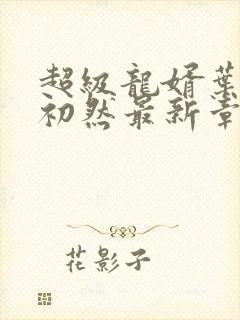 超級龍婿葉
初然最新章
花影子